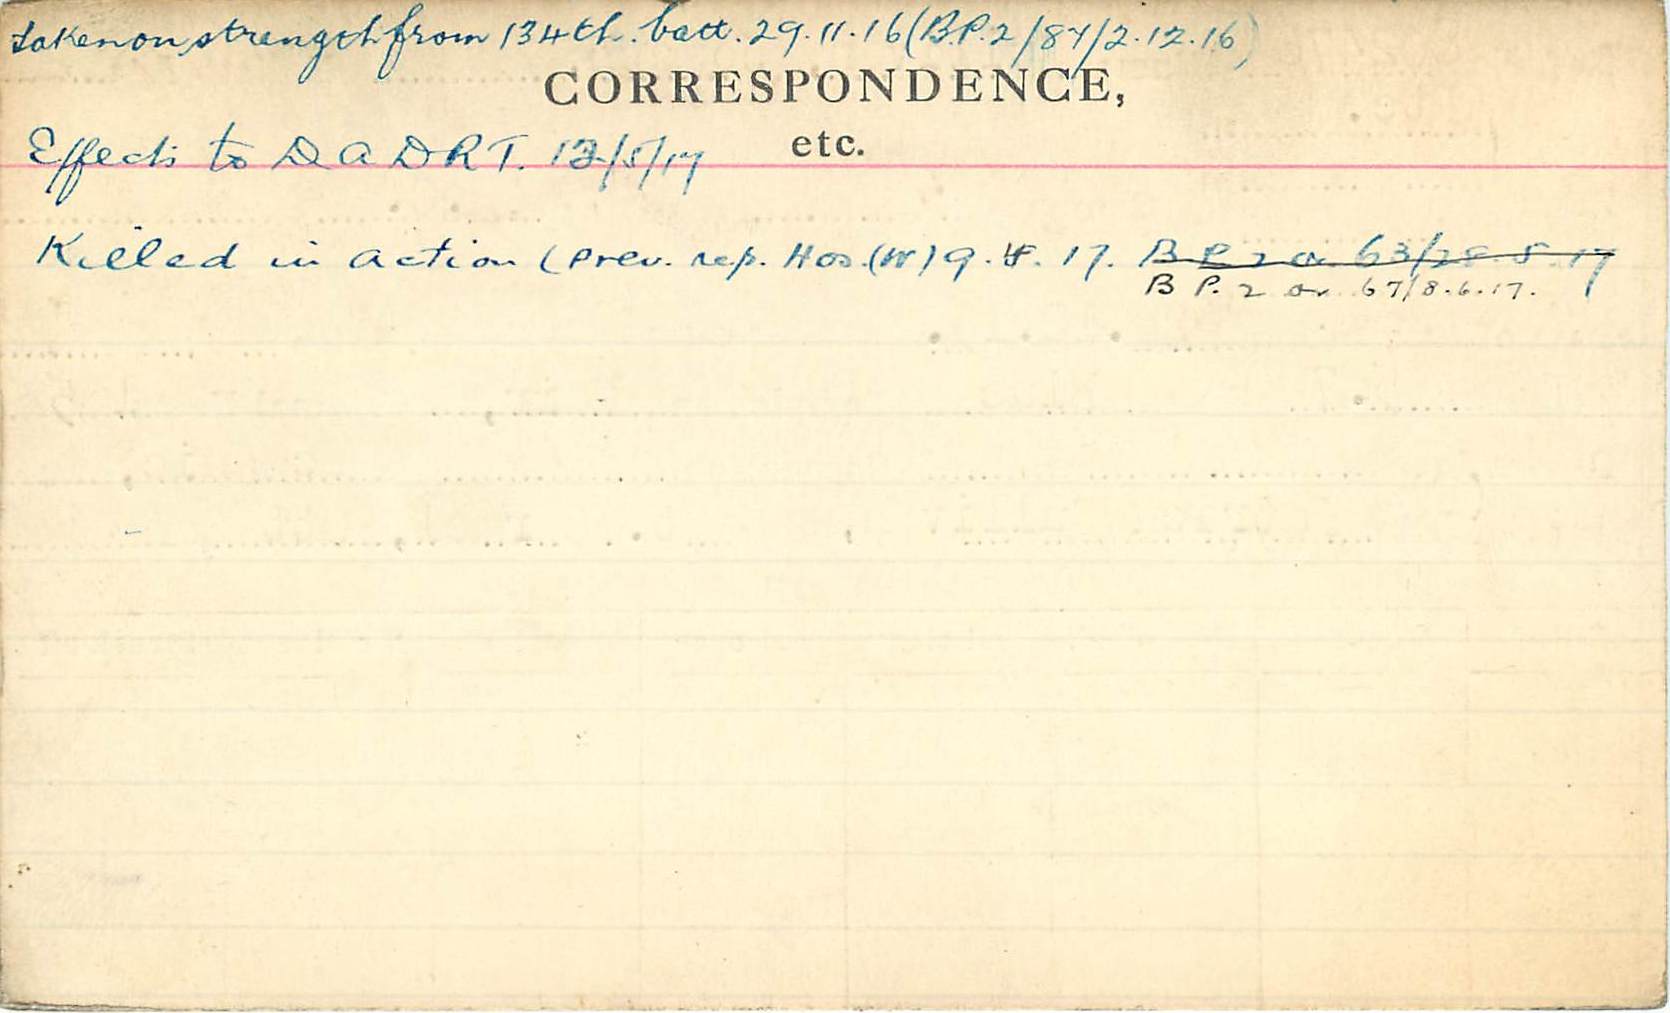 taken on strength from 134th. batt. 29.11.16 (B.P.2/87/2.12.16)
CORRESPONDENCE,
etc.
Effects to D A D R T. 12/5/17
Killed in action (prev. rep. Hos.(W) 9.4.17. B P. 2 a 63/28.5.17
B P. 2 a 67/8.6.17.